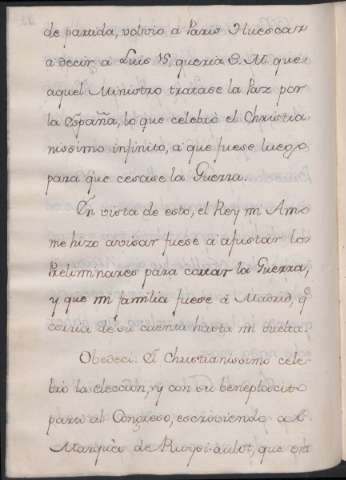 de partida, volvio à Paris Huescar
a decir á Luis 15, queria S. M. que
aquel Ministro tratase la Paz por
la España, lo que celebró el Christia-
nissimo infinito, á que fuese luego
para que cesase la Guerra.
En vista de esto, el Rey mi Amo
me hizo avisar fuese á ajustar los
Preliminares para cortar la Guerra,
y que mi familia fuese á Madrid, q.e
corria de su cuenta hasta mi buelta.
Obedeci. El Christianissimo cele-
bró la eleccion, y con su beneplacito
paré al Congreso, escriviendo al
Marqués de Puysieulx, que